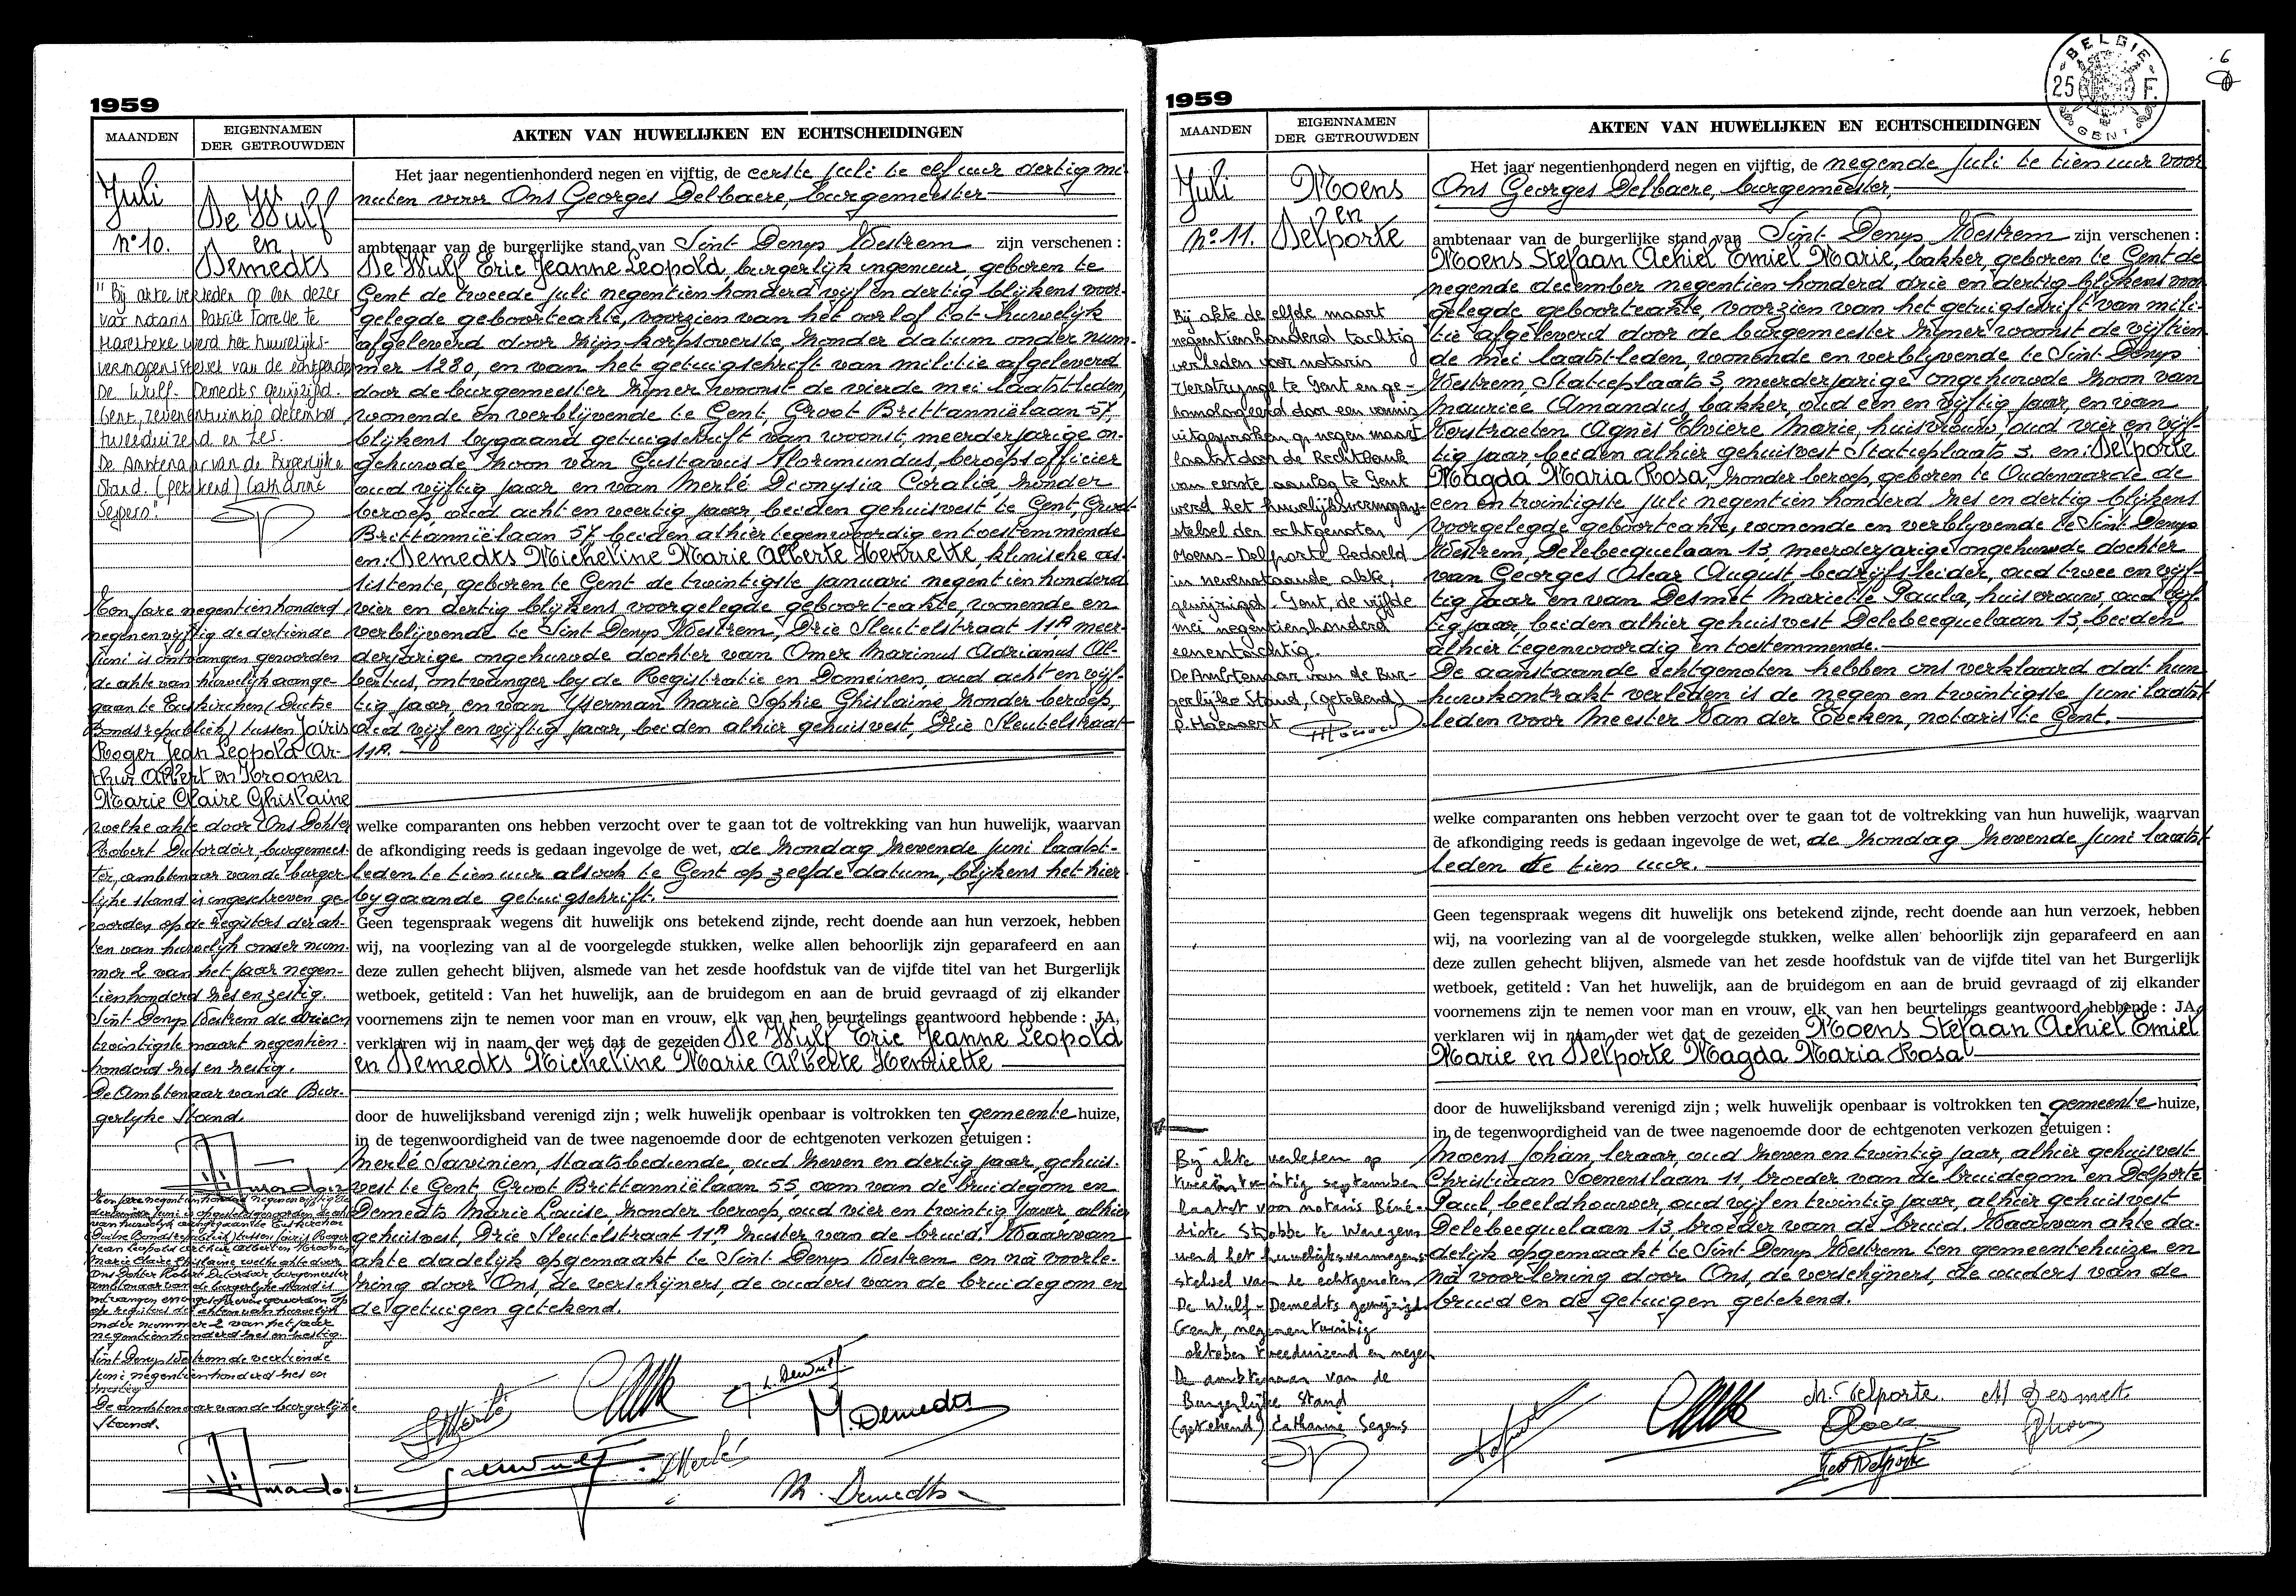 1959
MAANDEN
EIGENNAMEN
DER GETROUWDEN
AKTEN VAN HUWELIJKEN EN ECHTSCHEIDINGEN
Juli
De Wulf
en
Demedts
N° 10.
Het jaar negentienhonderd negen en vijftig, de eerste juli te elf uur dertig mi
nuten voor Ons Georges Delbaere, burgemeester
ambtenaar van de burgerlijke stand van Sint Denys Westrem zijn verschenen :
De Wulf Eric Jeanne Leopold, burgerlijk ingenieur, geboren te
Gent de tweede juli negentien honderd vijf en dertig blijkens voor-
gelegde geboorteakte, voorzien van het oorlof tot huwelijk
afgeleverd door zijn korpsoverste, zonder datum onder num-
mer 1280, en van het getuigschrift van militie afgeleverd
door de burgemeester zijner woonst de vierde mei laatstleden,
wonende en verblijvende te Gent, Groot Brittanniëlaan 57,
blijkens bygaand getuigschrift van woonst, meerderjarige on-
gehuwde zoon van Gustavus Florimundus, beroepsofficier
oud vijftig jaar en van Merlé Dionysia Coralia, zonder
beroep, oud acht en veertig jaar, beiden gehuisvest te Gent, Groot
Brittanniëlaan 57, beiden alhier tegenwoordig en toestemmende
en: Demedts Micheline Marie Alberte Henriette, klinische as-
sistente, geboren te Gent de twintigste januari negentien honderd
vier en dertig blijkens voorgelegde geboorteakte, wonende en
verblijvende te Sint Denys Westrem, Drie Sleutelstraat 11A meer-
derjarige ongehuwde dochter van Omer Marinus Adrianus Al-
bertus, ontvanger by de Registratie en Domeinen, oud acht en vijf-
tig jaar, en van Yserman Marie Sophie Ghislaine zonder beroep,
oud vijf en vijftig jaar, beiden alhier gehuisvest, Drie Sleutelstraat
11A.
welke comparanten ons hebben verzocht over te gaan tot de voltrekking van hun huwelijk, waarvan
de afkondiging reeds is gedaan ingevolge de wet, de zondag zevende juni laatst-
leden te tien uur alsook te Gent op zelfde datum, blijkens het hier
bygaande getuigschrift.
Geen tegenspraak wegens dit huwelijk ons betekend zijnde, recht doende aan hun verzoek, hebben
wij, na voorlezing van al de voorgelegde stukken, welke allen behoorlijk zijn geparafeerd en aan
deze zullen gehecht blijven, alsmede van het zesde hoofdstuk van de vijfde titel van het Burgerlijk
wetboek, getiteld : Van het huwelijk, aan de bruidegom en aan de bruid gevraagd of zij elkander
voornemens zijn te nemen voor man en vrouw, elk van hen beurtelings geantwoord hebbende : JA,
verklaren wij in naam der wet dat de gezeiden De Wulf Eric Jeanne Leopold
en Demedts Micheline Marie Alberte Henriette
door de huwelijksband verenigd zijn ; welk huwelijk openbaar is voltrokken ten gemeente huize,
in de tegenwoordigheid van de twee nagenoemde door de echtgenoten verkozen getuigen :
Merlé Savinien, staatsbediende, oud zeven en dertig jaar, gehuis-
vest te Gent Groot Brittanniëlaan 55, oom van de bruidegom en
Demedts Marie Louise, zonder beroep, oud vier en twintig jaar, alhier
gehuisvest, Drie Sleutelstraat 11A, zuster van de bruid. Waarvan
akte dadelijk opgemaakt te Sint Denys Westrem en na voorle-
zing door Ons, de verschijners, de ouders van de bruidegom en
de getuigen getekend.
"Bij akte verleden op een dezer
voor notaris Patrick Torrelle te
Harelbeke werd het huwelijks-
vermogensstelsel van de echtgenoten
De Wulf - Demedts gewijzigd.
Gent, zevenentwintig december
tweeduizend en zes.
De Ambtenaar van de Burgerlijke
Stand. (getekend) Catharine
Segers".
Ten jare negentienhonderd
negenenvijftig de dertiende
juni is ontvangen geworden
de akte van huwelijk aange-
gaan te Euskirchen (Duitse
Bondsrepubliek) tussen Joiris
Roger Jean Leopold Ar-
thur Albert en Kroonen
Marie Claire Ghislaine
welke akte door Ons Dokter
Robert Dufordoir, burgemees-
ter, ambtenaar van de burger-
lijke stand is ingeschreven ge-
worden op de registers der ak-
ten van huwelijk onder num-
mer 2 van het jaar negen-
tienhonderd zes en zestig.
Sint Denys Westrem de drieen
twintigste maart negentien-
honderd zes en zestig.
De Ambtenaar van de Bur-
gerlyke Stand.
van huwelijk aangegaan te Euskirchen
Duitse Bondsrepubliek) tussen Joiris Roger
Jean Leopold Arthur Albert en Kroonen
Marie Claire Ghislaine welke akte door
Ons Dokter Robert Dufordoir burgemeester
ambtenaar van de burgerlijke stand is
op registers der akten van huwelijk
onder nummer 2 van het jaar
negentienhonderd zes en zestig.
Sint Denys Westrem de veertiende
juni negentienhonderd zes en
zestig
De ambtenaar van de burgerlijke
Stand.
M. Demedts
M. Demedts
1959
BELGIE
25 F.
GENT
6
MAANDEN
EIGENNAMEN
DER GETROUWDEN
AKTEN VAN HUWELIJKEN EN ECHTSCHEIDINGEN
Juli
Moens
en
Delporte
N° 11.
Het jaar negentienhonderd negen en vijftig, de negende juli te tien uur voor
Ons Georges Delbaere, burgemeester,
ambtenaar van de burgerlijke stand van Sint Denys Westrem zijn verschenen :
Moens Stefaan Achiel Emiel Marie, bakker, geboren te Gent de
negende december negentien honderd drie en dertig blijkens voor
gelegde geboorteakte, voorzien van het getuigschrift van mili-
tie afgeleverd door de burgemeester zijner woonst de vijftien
de mei laatst-leden, wonende en verblyvende te Sint Denys
Westrem, Statieplaats 3, meerderjarige ongehuwde zoon van
Maurice Amandus, bakker, oud een en vijftig jaar, en van
Verstraeten Agnès Elviere Marie, huisvrouw, oud vier en vijf-
tig jaar, beiden alhier gehuisvest Statieplaats 3. en: Delporte
Magda Maria Rosa, zonder beroep, geboren te Oudenaarde de
een en twintigste juli negentien honderd zes en dertig blijkens
voorgelegde geboorteakte, wonende en verblyvende te Sint Denys
Westrem, Delebecquelaan 13, meerderjarige ongehuwde dochter
van Georges Oscar August bedrijfsleider, oud twee en vijf-
tig jaar en van Desmet Mariette Paula, huisvrouw, oud vijf-
tig jaar, beiden alhier gehuisvest Delebecquelaan 13, beiden
alhier tegenwoordig en toestemmende.
De aanstaande echtgenoten hebben ons verklaard dat hun
huwkontrakt verleden is de negen en twintigste juni laatst
leden voor Meester Van der Eecken, notaris te Gent.
welke comparanten ons hebben verzocht over te gaan tot de voltrekking van hun huwelijk, waarvan
de afkondiging reeds is gedaan ingevolge de wet, de zondag zevende juni laatst
leden te tien uur.
Geen tegenspraak wegens dit huwelijk ons betekend zijnde, recht doende aan hun verzoek, hebben
wij, na voorlezing van al de voorgelegde stukken, welke allen behoorlijk zijn geparafeerd en aan
deze zullen gehecht blijven, alsmede van het zesde hoofdstuk van de vijfde titel van het Burgerlijk
wetboek, getiteld : Van het huwelijk, aan de bruidegom en aan de bruid gevraagd of zij elkander
voornemens zijn te nemen voor man en vrouw, elk van hen beurtelings geantwoord hebbende : JA,
verklaren wij in naam der wet dat de gezeiden Moens Stefaan Achiel Emiel
Marie en Delporte Magda Maria Rosa
door de huwelijksband verenigd zijn ; welk huwelijk openbaar is voltrokken ten gemeente huize,
in de tegenwoordigheid van de twee nagenoemde door de echtgenoten verkozen getuigen :
Moens Johan, leraar, oud zeven en twintig jaar, alhier gehuisvest
Christiaan Soenenslaan 11, broeder van de bruidegom en Delporte
Paul, beeldhouwer, oud vijf en twintig jaar, alhier gehuisvest
Delebecquelaan 13, broeder van de bruid. Waarvan akte da-
delijk opgemaakt te Sint Denys Westrem ten gemeentehuize en
na voorlezing door Ons, de verschijners, de ouders van de
bruid en de getuigen getekend.
Bij akte de elfde maart
negentienhonderd tachtig
verleden voor notaris
Verstrynge te Gent en ge-
homologeerd door een vonnis
uitgesproken op negen maart
laatst door de Rechtbank
van eerste aanleg te Gent
werd het huwelijksvermogens-
stelsel der echtgenoten
Moens-Delporte bedoeld
in nevenstaande akte,
gewijzigd. Gent, de vijfde
mei negentienhonderd
eenentachtig.
De Ambtenaar van de Bur-
gerlijke Stand, (getekend)
Bij akte verleden op
tweeëntwintig september
laatst voor notaris Béné-
dicte Strobbe te Waregem
werd het huwelijksvermogens-
stelsel van de echtgenoten
De Wulf - Demedts gewijzigd.
Gent, negenentwintig
oktober tweeduizend en negen
De ambtenaar van de
Burgerlijke Stand
(getekend) Catharine Segers
M. Delporte. M Desmet
Geo Delporte